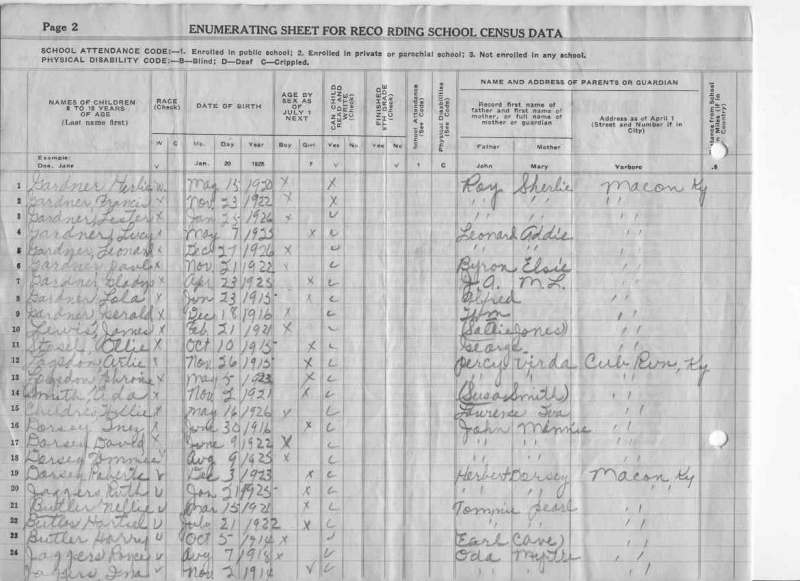 Page 2
ENUMERATING SHEET FOR RECORDING SCHOOL CENSUS DATA
SCHOOL ATTENDANCE CODE:—1. Enrolled in public school; 2. Enrolled in private or parochial school; 3. Not enrolled in any school.
PHYSICAL DISABILITY CODE:—B—Blind; D—Deaf C—Crippled.
NAMES OF CHILDREN 6 TO 18 YEARS OF AGE (Last name first)
RACE (Check)
W C
DATE OF BIRTH
Mo. Day Year
AGE BY SEX AS OF JULY 1 NEXT
Boy Girl
CAN CHILD READ AND WRITE (Check)
Yes No
FINISHED 8TH GRADE (Check)
Yes No
School Attendance (See Code)
Physical Disabilities (See Code)
NAME AND ADDRESS OF PARENTS OR GUARDIAN
Record first name of father and first name of mother, or full name of mother or guardian
Father Mother
Address as of April 1 (Street and Number if in City)
Distance from School in Miles (if in Country)
Example:
Doe, Jane v Jan. 20 1925 7 v v 1 C John Mary Yarboro .5
1 Gardner W May 15 1920 x x Roy Sherlie Macon Ky
2 Gardner Francis x Nov 23 1922 x x " " " "
3 Gardner, Lester x Jan 25 1926 x " " " "
4 Gardner, Lucy x May 7 1925 x Leonard Addie " "
5 Gardner, Leonard x Dec 27 1926 x " " " "
6 Gardner Paul x Nov 21 1922 x Byron Elsie " "
7 Gardner Gladys x Apr 23 1925 x J. A. M. L. " "
8 Gardner Lola x Jan 23 1915 x Alfred " "
9 Gardner Gerald x Dec 18 1916 x Wm " "
10 Lewis, James x Feb 21 1921 x (Sallie Jones) " "
11 Ollie x Oct 10 1915 x George " "
12 Logsdon x Nov 26 1915 x Percy Virda Cub Run, Ky
13 Logsdon x May 5 1923 x " " " "
14 Smith x Nov 2 1921 x (Susa Smith) " "
15 Childres x May 16 1926 Laurene Iva " "
16 Dorsey Inez x June 30 1916 x John Minnie " "
17 Dorsey David x June 9 1922 x " " " "
18 Dorsey Tommie Aug 9 1925 x " " " "
19 Dorsey Roberta v Dec 3 1923 x Herbert Dorsey Macon Ky
20 Jaggers Ruth v Jan 21 1925 x " " " "
21 Butler Nellie v Mar 15 1921 x Tommie Pearl " "
22 Butler v July 21 1922 x " " " "
23 Butler Harry v Oct 5 1914 x (Earl Cave) " "
24 Jaggers v Aug 7 1918 x Oda Myrtle " "
Jaggers Ina v Nov 2 1914 v " " " "